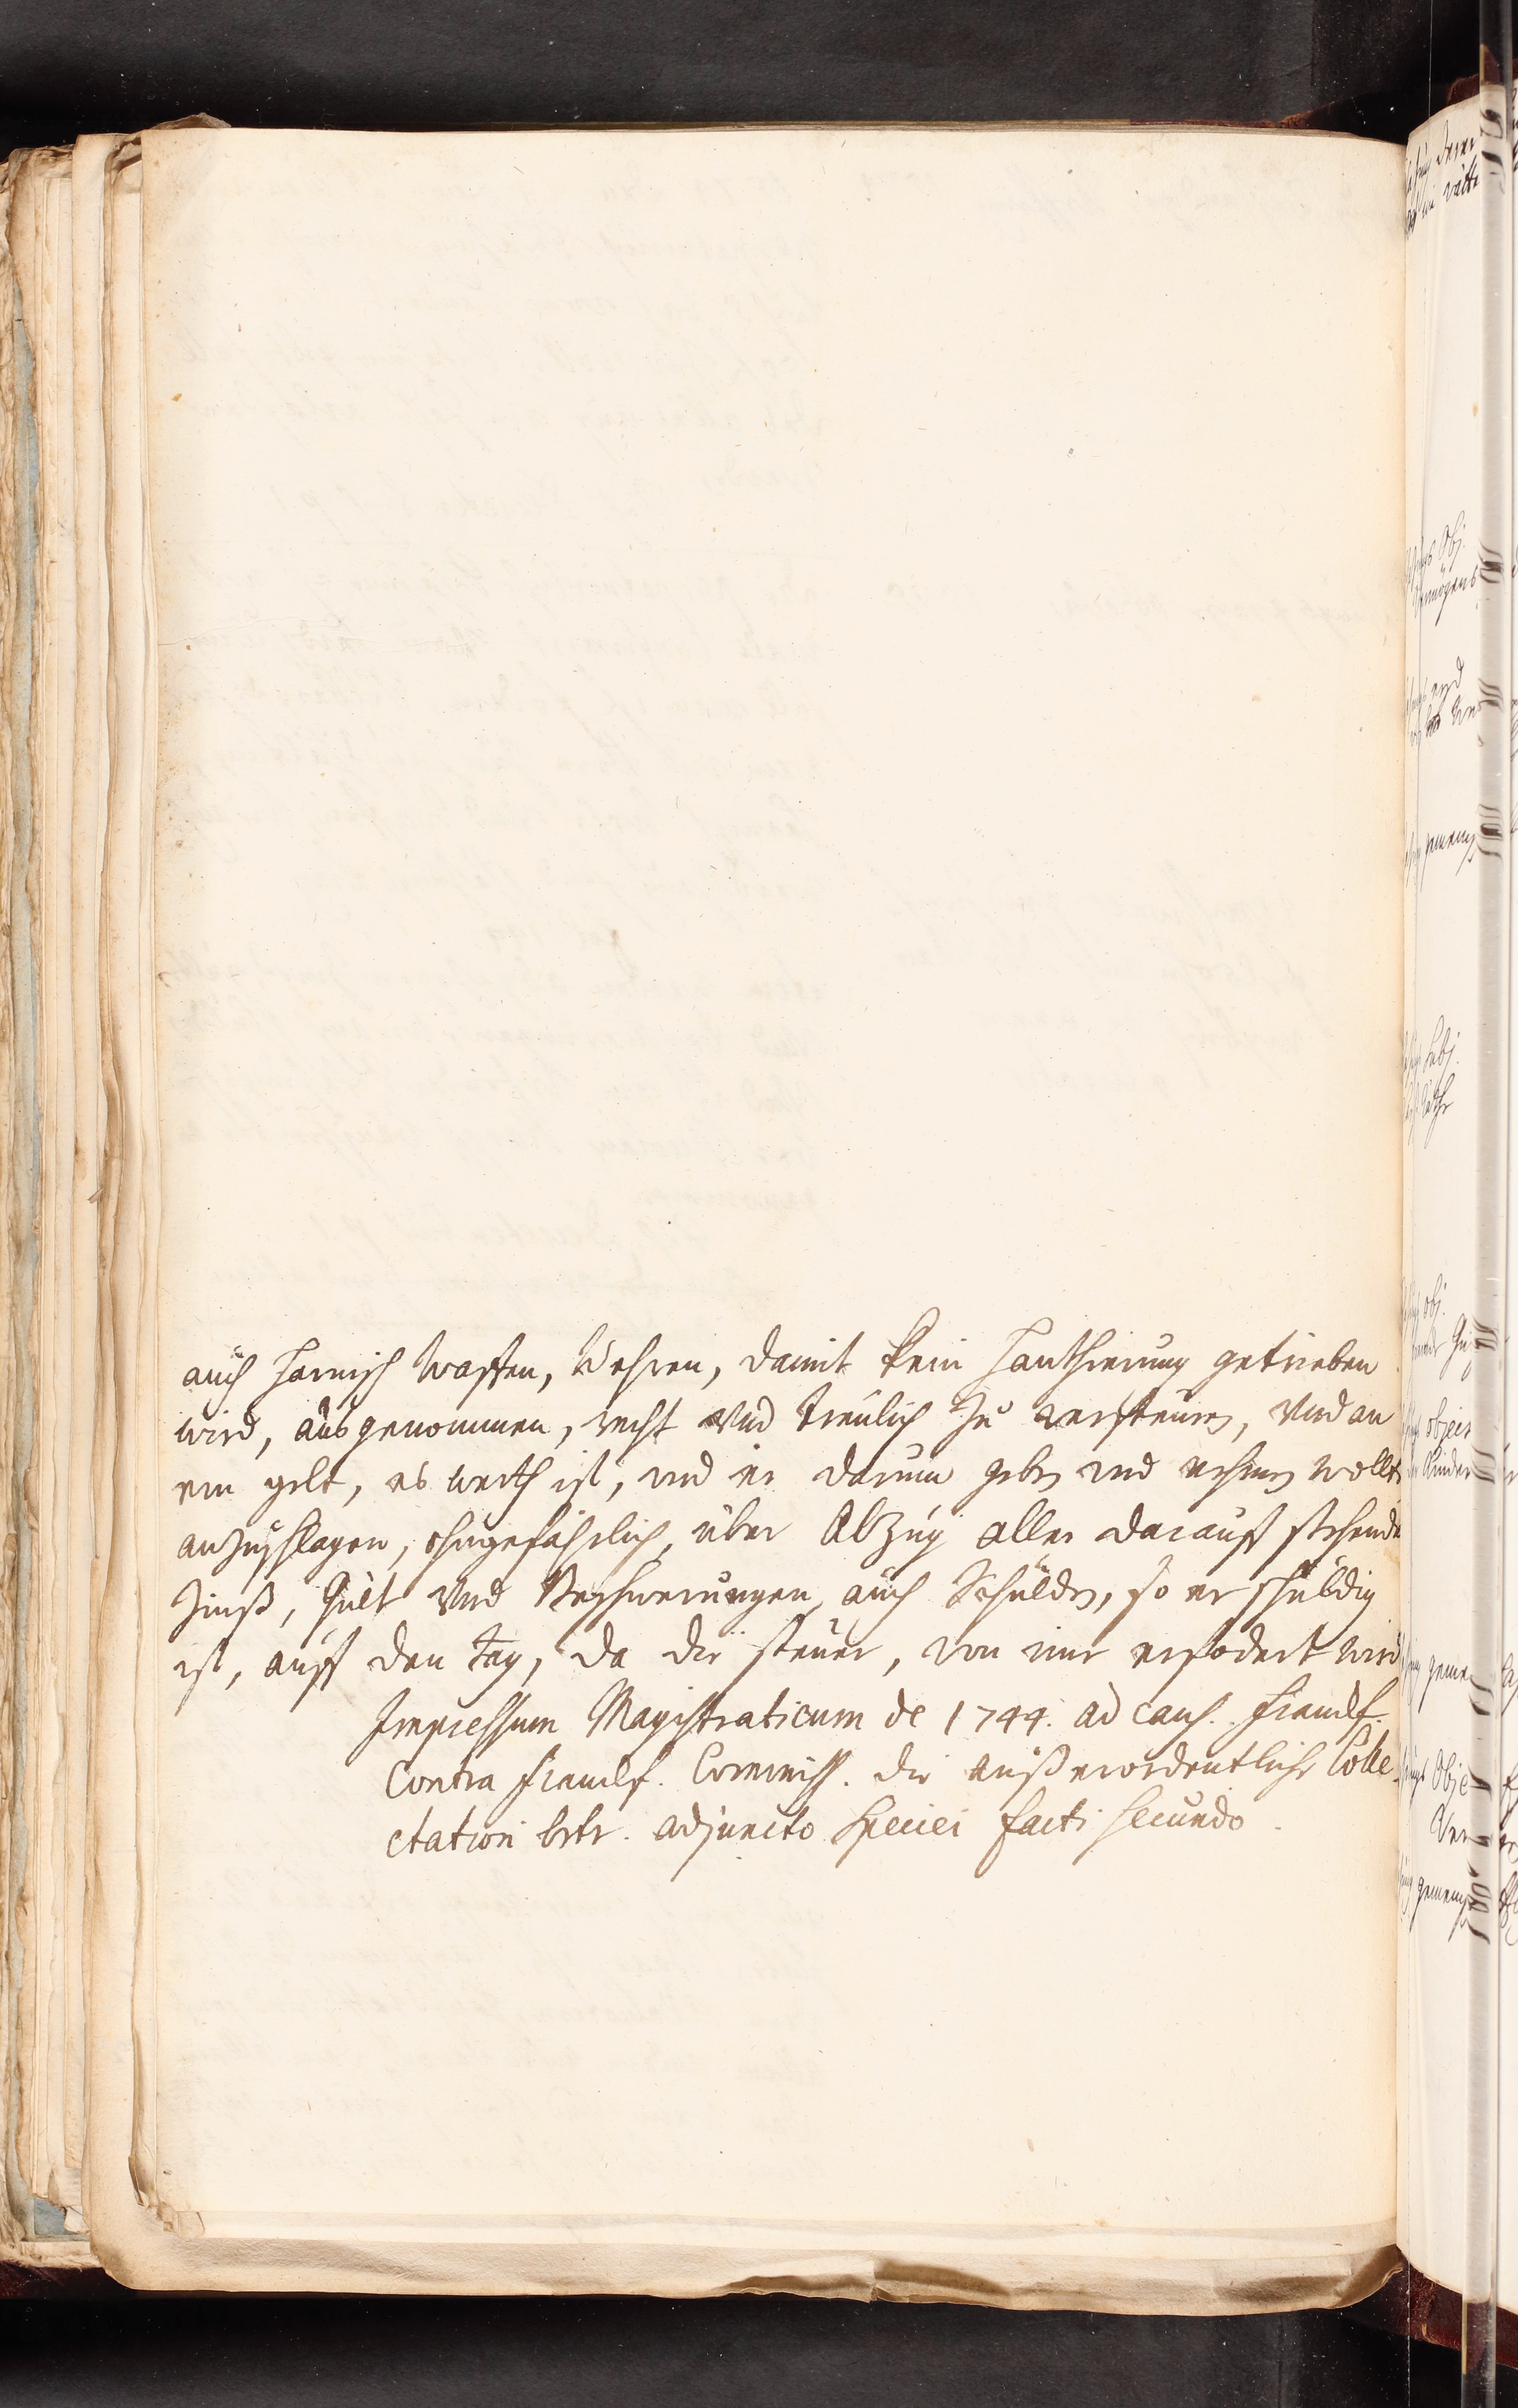 auch Harnisch Waffen, Wehren, damit kein Hanthierung getrieben
wird, ausgenommen, recht und treulich zu versteuren, und an
ein gelt, es werth ist, und er darum geben und nehmen wollte
anzuschlagen, ohngefährlich, über Abzug aller darauff stehende
Zinß, Gült und Beschwerungen, auch Schulden, so er schuldig
ist, auff den Tag, da die steuer, von ime erfodert wird
Impressum Magistraticum de 1744. ad caus. Franckf.
Contra Franckf. Commiss. die außerordentliche Colle
ctation betr. adjuncto Speciei facti secundo.